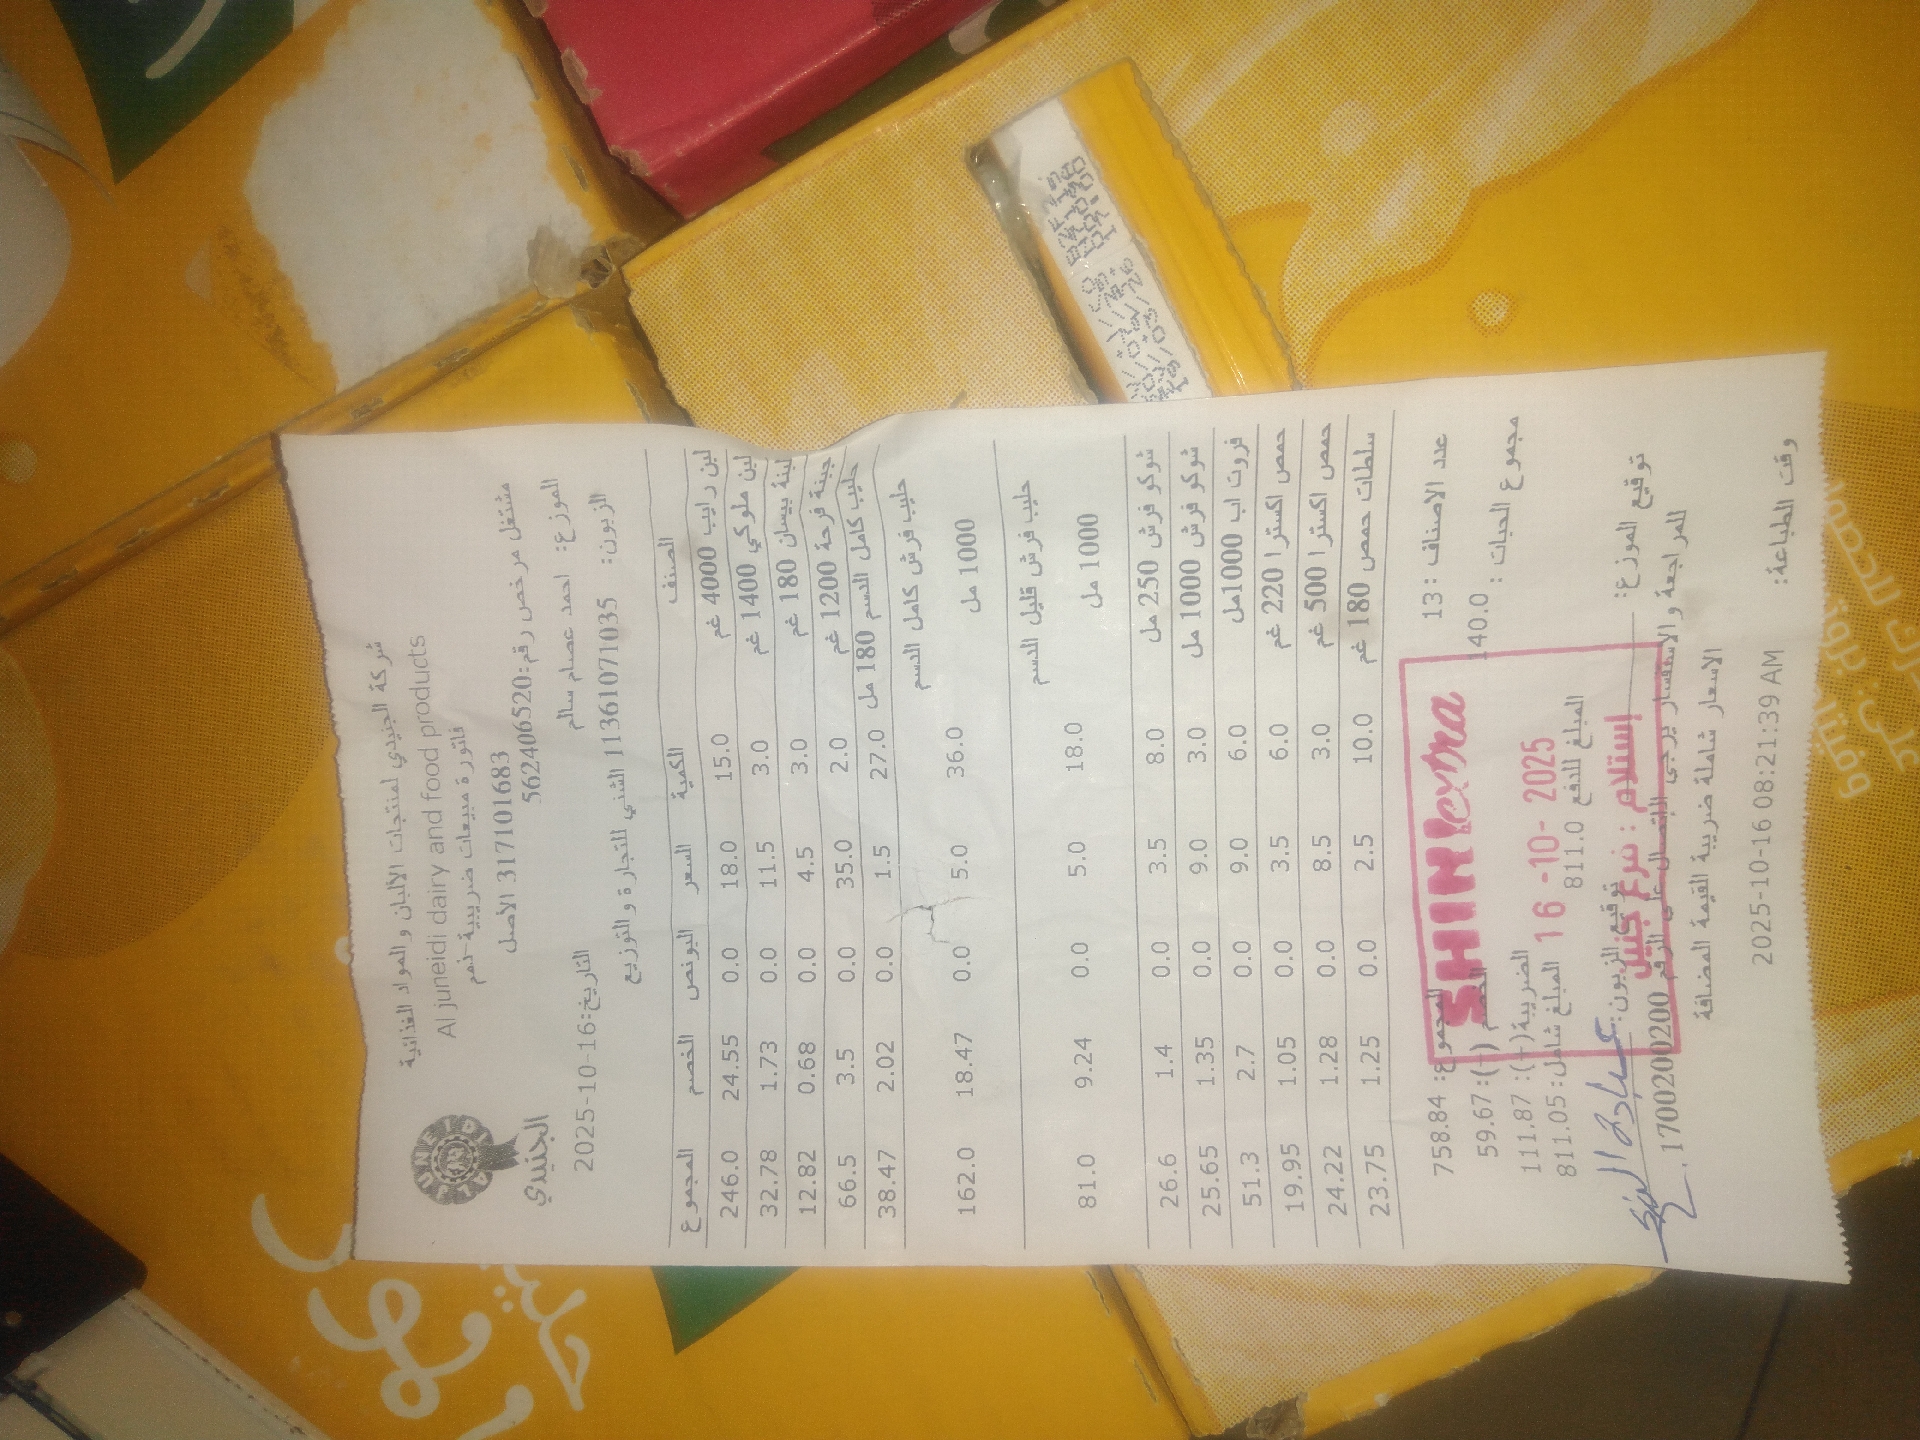 شركة الجنيدي لمنتجات الألبان والمواد الغذائية
Al juneidi dairy and food products
فاتورة مبيعات ضريبية-ذمم
317101683 الأصل
مشتغل مرخص رقم:562406520
الموزع: احمد عصام سالم
AL JUNEIDI
الجنيدي
التاريخ:2025-10-16
الزبون: 11361071035 الشني للتجارة والتوزيع
الصنف الكمية السعر البونص الخصم المجموع
لبن رايب 4000 غم 15.0 18.0 0.0 24.55 246.0
لبن ملوكي 1400 غم 3.0 11.5 0.0 1.73 32.78
لبنة بيسان 180 غم 3.0 4.5 0.0 0.68 12.82
جبنة فرحة 1200 غم 2.0 35.0 0.0 3.5 66.5
حليب كامل الدسم 180 مل 27.0 1.5 0.0 2.02 38.47
حليب فرش كامل الدسم
1000 مل 36.0 5.0 0.0 18.47 162.0
حليب فرش قليل الدسم
1000 مل 18.0 5.0 0.0 9.24 81.0
شوكو فرش 250 مل 8.0 3.5 0.0 1.4 26.6
شوكو فرش 1000 مل 3.0 9.0 0.0 1.35 25.65
فروت اب 1000مل 6.0 9.0 0.0 2.7 51.3
حمص اكسترا 220 غم 6.0 3.5 0.0 1.05 19.95
حمص اكسترا 500 غم 3.0 8.5 0.0 1.28 24.22
سلطات حمص 180 غم 10.0 2.5 0.0 1.25 23.75
عدد الاصناف :13
المجموع: 758.84
مجموع الحبات : 140.0
الخصم (-):59.67
الضريبة(+): 111.87
المبلغ شامل: 811.05
المبلغ للدفع 811.0
SHINI extra
16 -10- 2025
إستلام : فرع جنين
توقيع الموزع:
توقيع الزبون:
للمراجعة والاستفسار يرجى الاتصال على الرقم 1700200200
الاسعار شاملة ضريبة القيمة المضافة
وقت الطباعة:
2025-10-16 08:21:39 AM